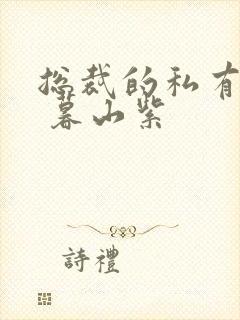 总裁的私有
暮山紫
詩禮